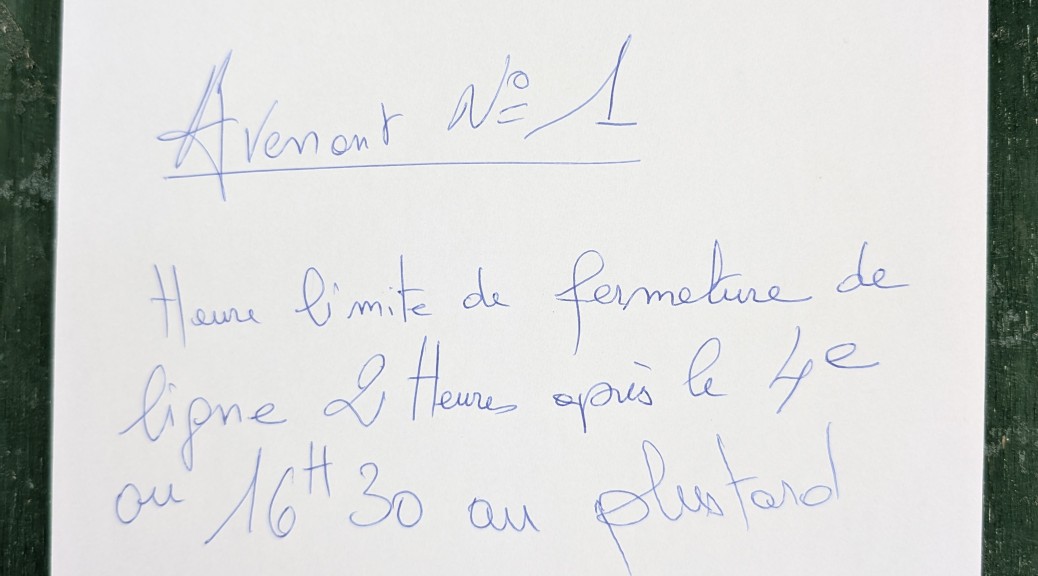 Avenant N° 1
Heure limite de fermeture de
ligne 2 Heures après le 4e
ou 16H30 au plus tard